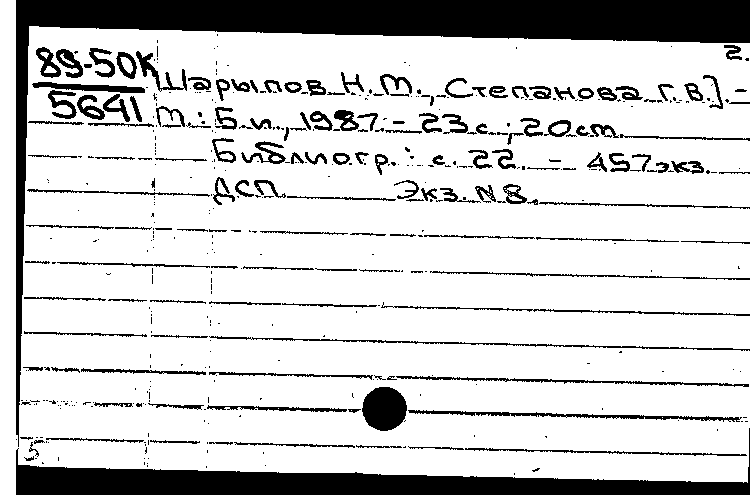 2.
89-50К
5641
Шарыпов Н.М., Степанова Г.В.]. -
М.: Б.и., 1987. - 23 с.; 20 cm.
Библиогр.: с. 22. - 457 экз.
ДСП. Экз. N 8.
5